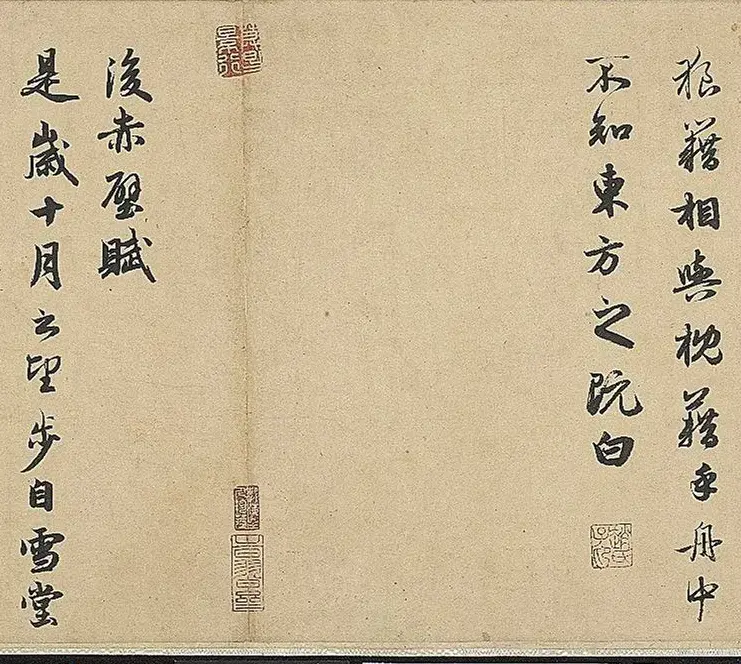 狼籍相與枕藉乎舟中
不知東方之既白
後赤壁賦
是歲十月之望步自雪堂